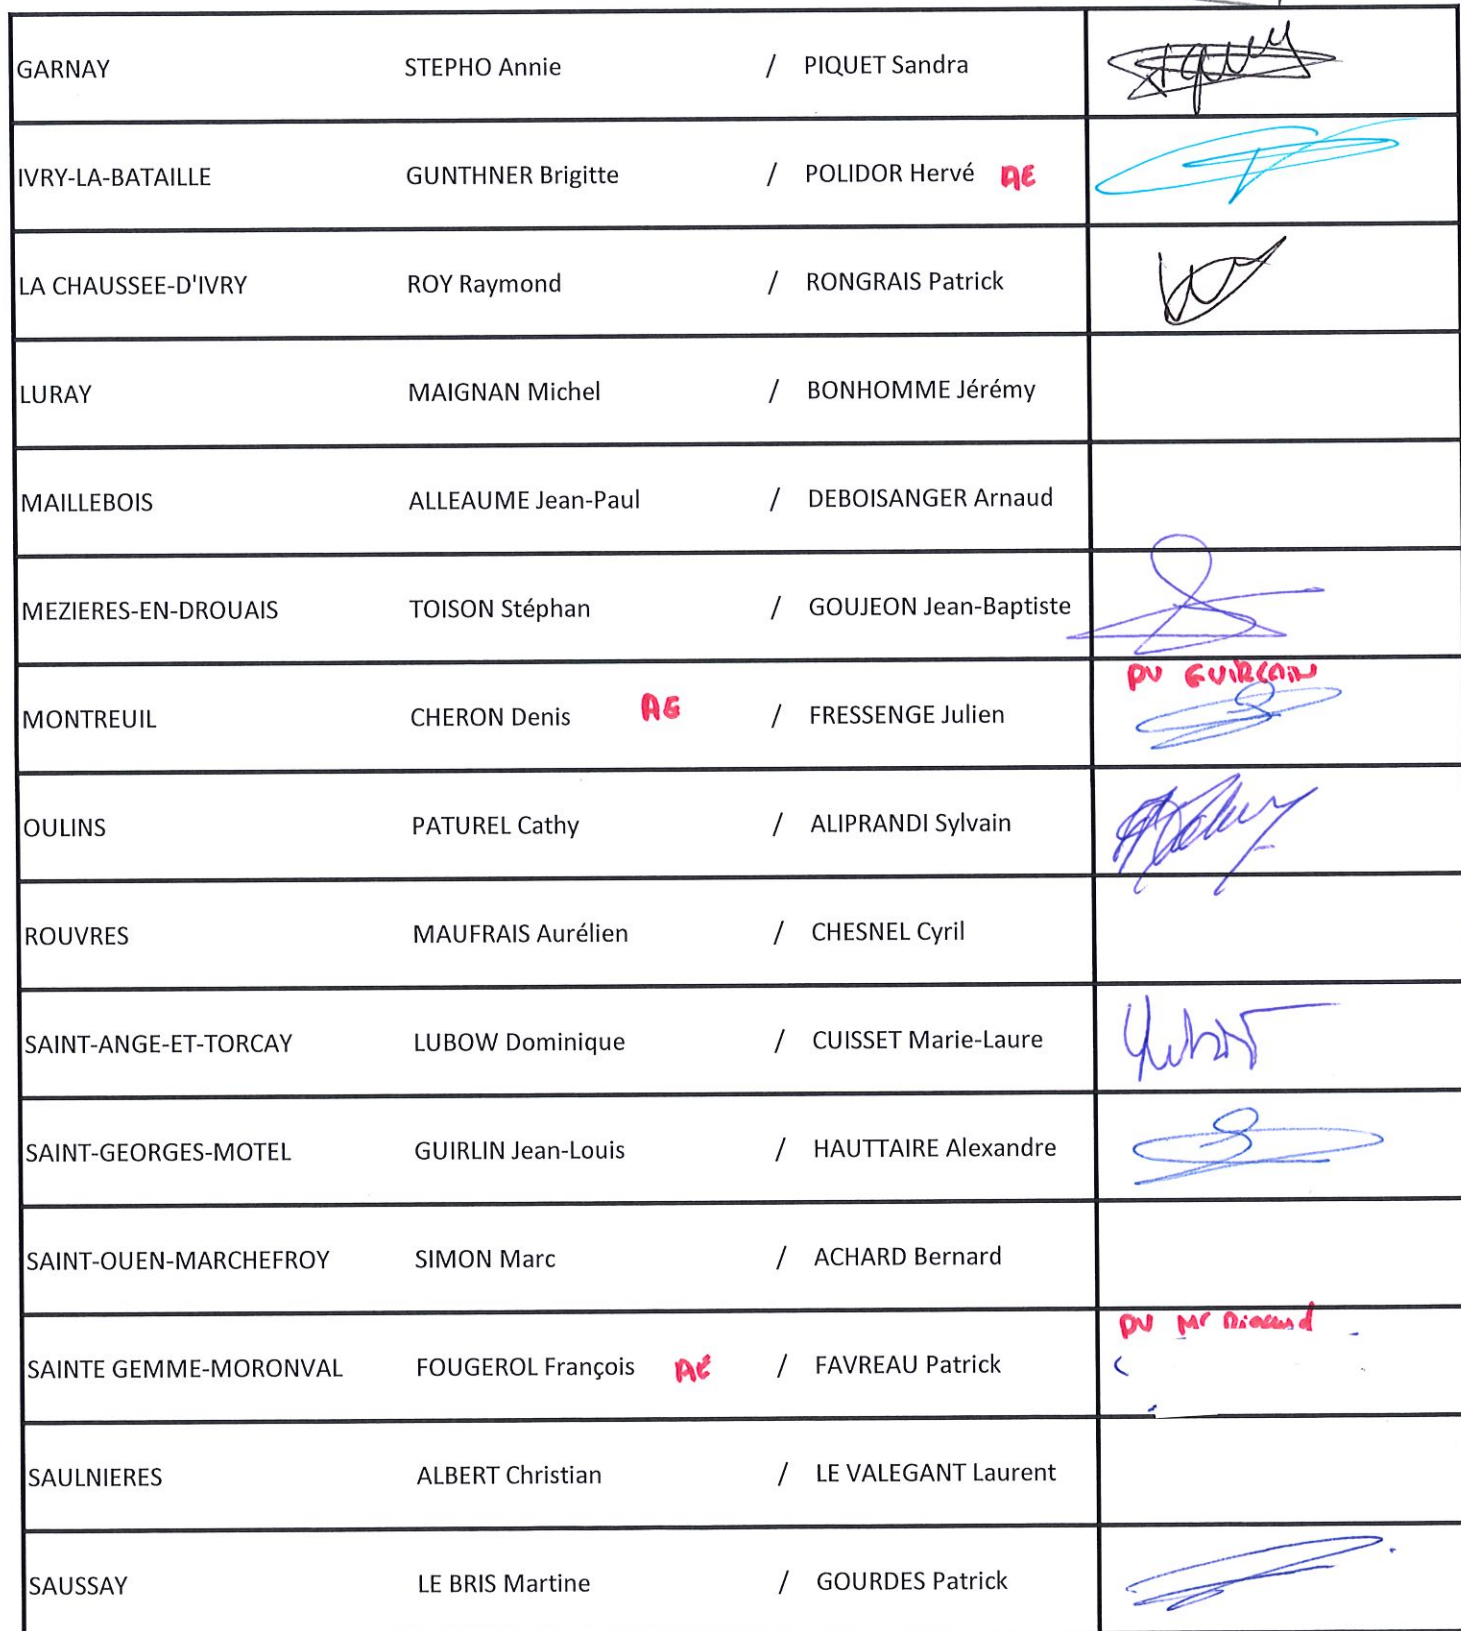 GARNAY STEPHO Annie / PIQUET Sandra
IVRY-LA-BATAILLE GUNTHNER Brigitte / POLIDOR Hervé AE
LA CHAUSSEE-D'IVRY ROY Raymond / RONGRAIS Patrick
LURAY MAIGNAN Michel / BONHOMME Jérémy
MAILLEBOIS ALLEAUME Jean-Paul / DEBOISANGER Arnaud
MEZIERES-EN-DROUAIS TOISON Stéphan / GOUJEON Jean-Baptiste
PV
MONTREUIL CHERON Denis AE / FRESSENGE Julien
OULINS PATUREL Cathy / ALIPRANDI Sylvain
ROUVRES MAUFRAIS Aurélien / CHESNEL Cyril
SAINT-ANGE-ET-TORCAY LUBOW Dominique / CUISSET Marie-Laure
SAINT-GEORGES-MOTEL GUIRLIN Jean-Louis / HAUTTAIRE Alexandre
SAINT-OUEN-MARCHEFROY SIMON Marc / ACHARD Bernard
PV Mr
SAINTE GEMME-MORONVAL FOUGEROL François AE / FAVREAU Patrick
SAULNIERES ALBERT Christian / LE VALEGANT Laurent
SAUSSAY LE BRIS Martine / GOURDES Patrick